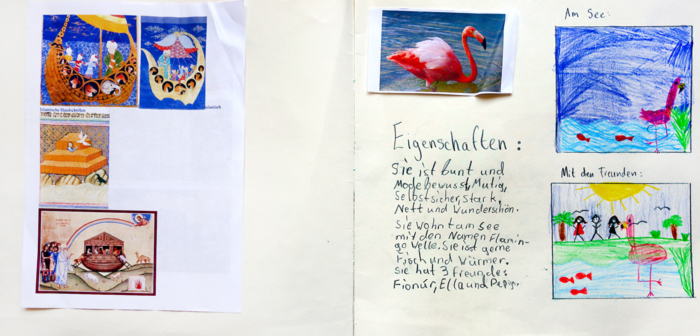 Islamische Handschriften
Am See:
Eigenschaften:
Sie ist bunt und
Modebewusst, Mutig,
Selbstsicher, Stark,
Nett und Wunderschön.
Sie wohnt am See
mit den Namen Flamin-
go Velle. Sie ist gerne
Fisch und Würmer.
Sie hat 3 Freundes
Fionur, Ella und
Mit den Freunden: